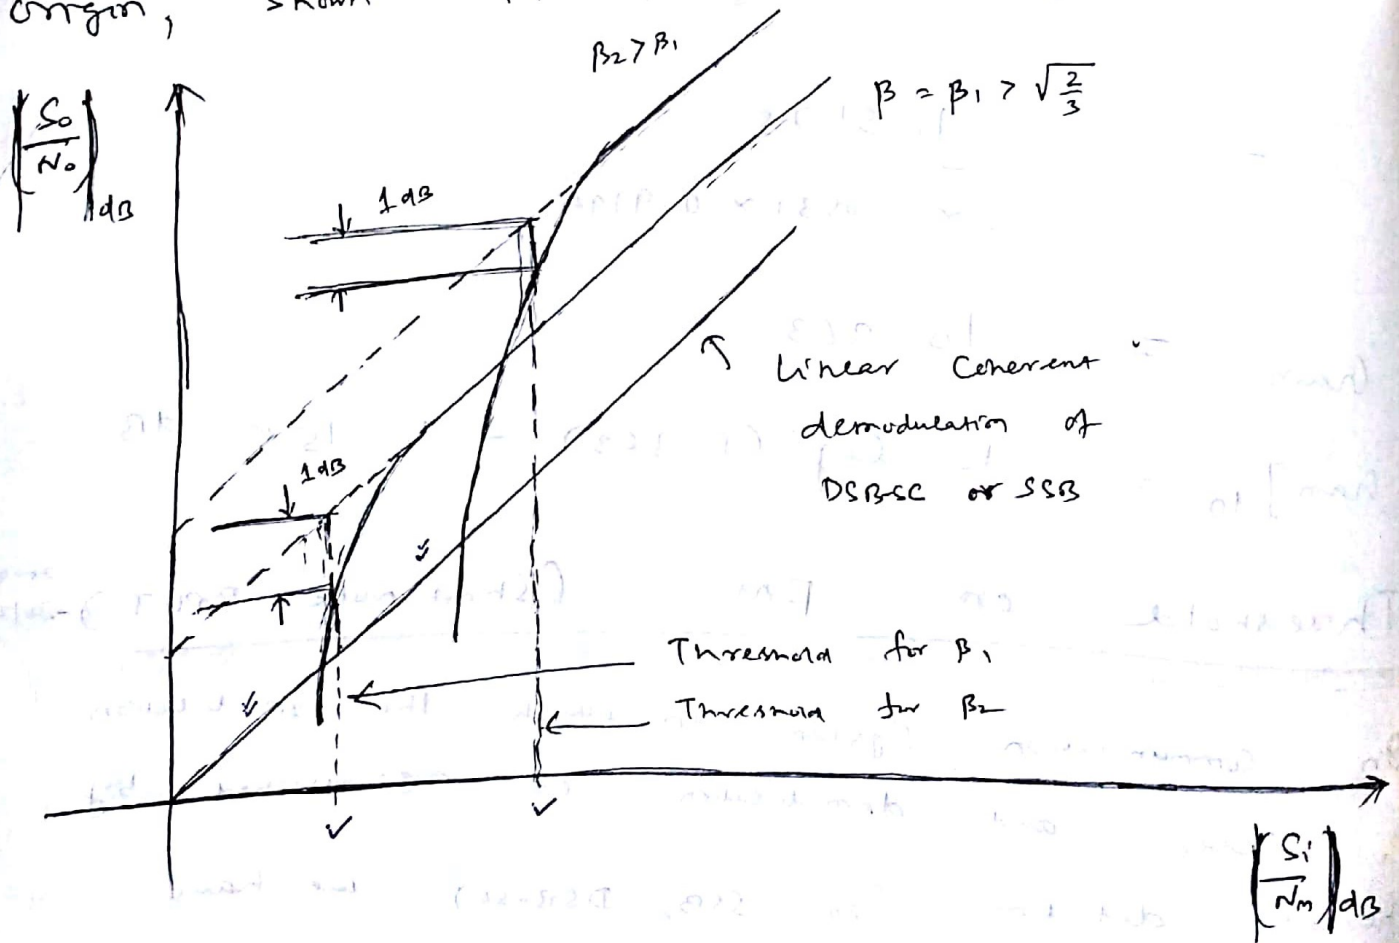 origin, shown
β₂ > β₁
β = β₁ > √(2/3)
(So/No)dB
1 dB
1 dB
Linear Coherent
demodulation of
DSB-SC or SSB
Threshold for β₁
Threshold for β₂
(Si/Nm)dB